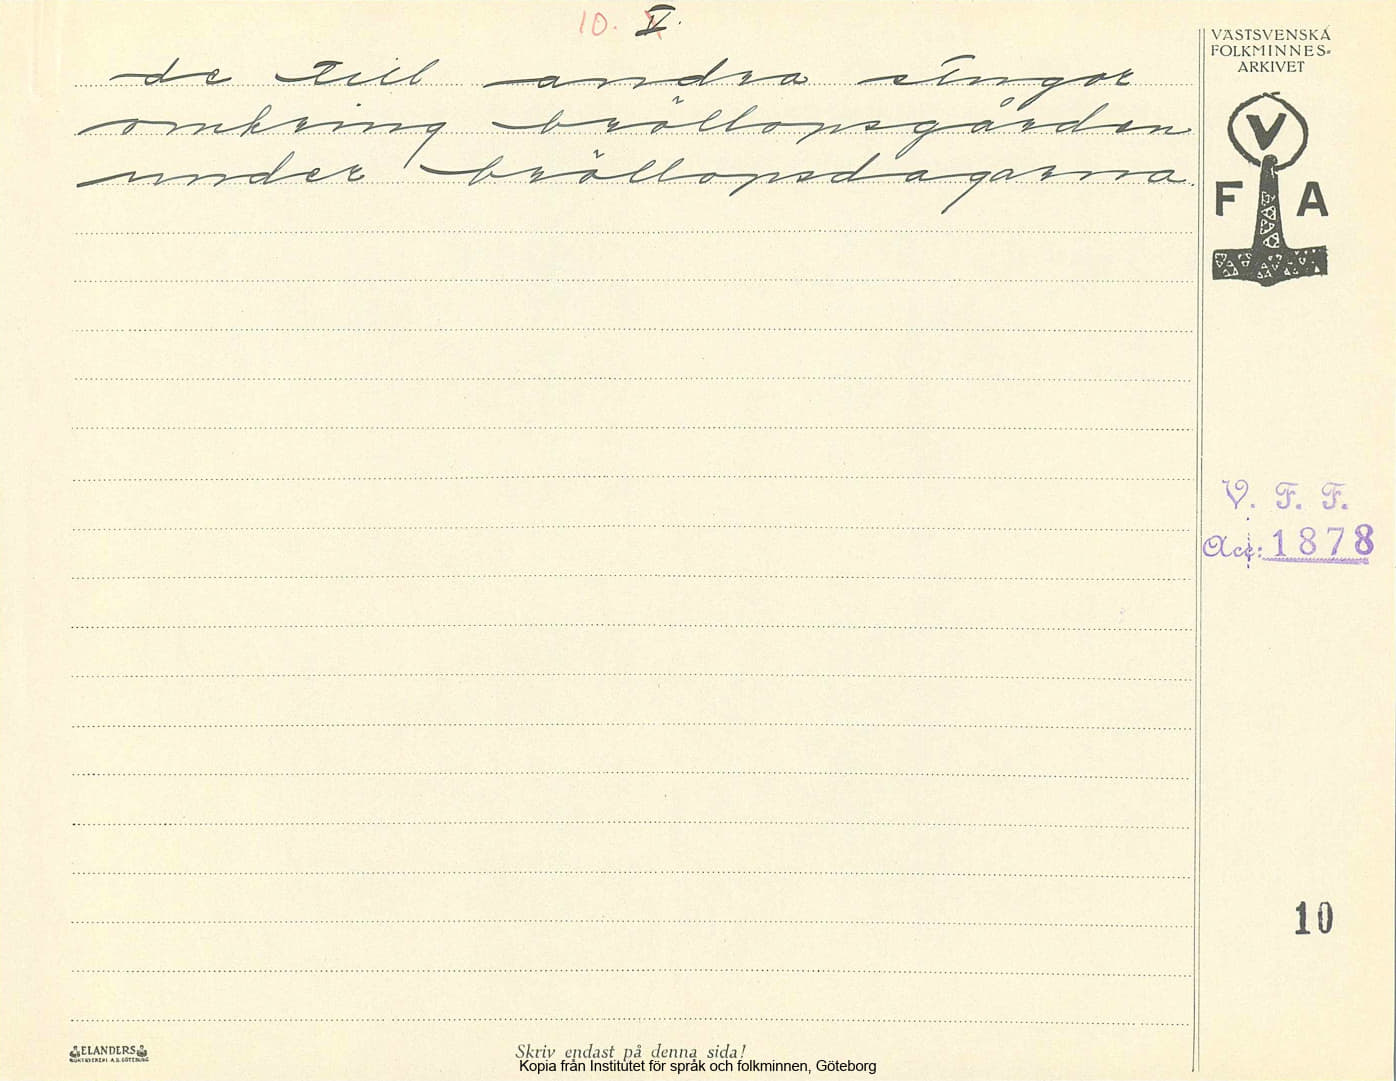 10. V.
VÄSTSVENSKA
FOLKMINNES-
ARKIVET
de till andra stugor
omkring bröllopsgården
under bröllopsdagarna.
V
F A
V. F. F.
Acc: 1878
10
ELANDERS
BOKTRYCKERI A.B. GÖTEBORG
Skriv endast på denna sida!
Kopia från Institutet för språk och folkminnen, Göteborg